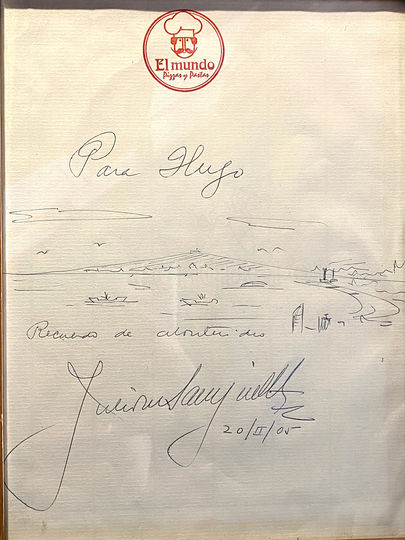 El mundo
Pizzas y Pastas
Para Hugo
Recuerdo de Montevideo
20/II/05